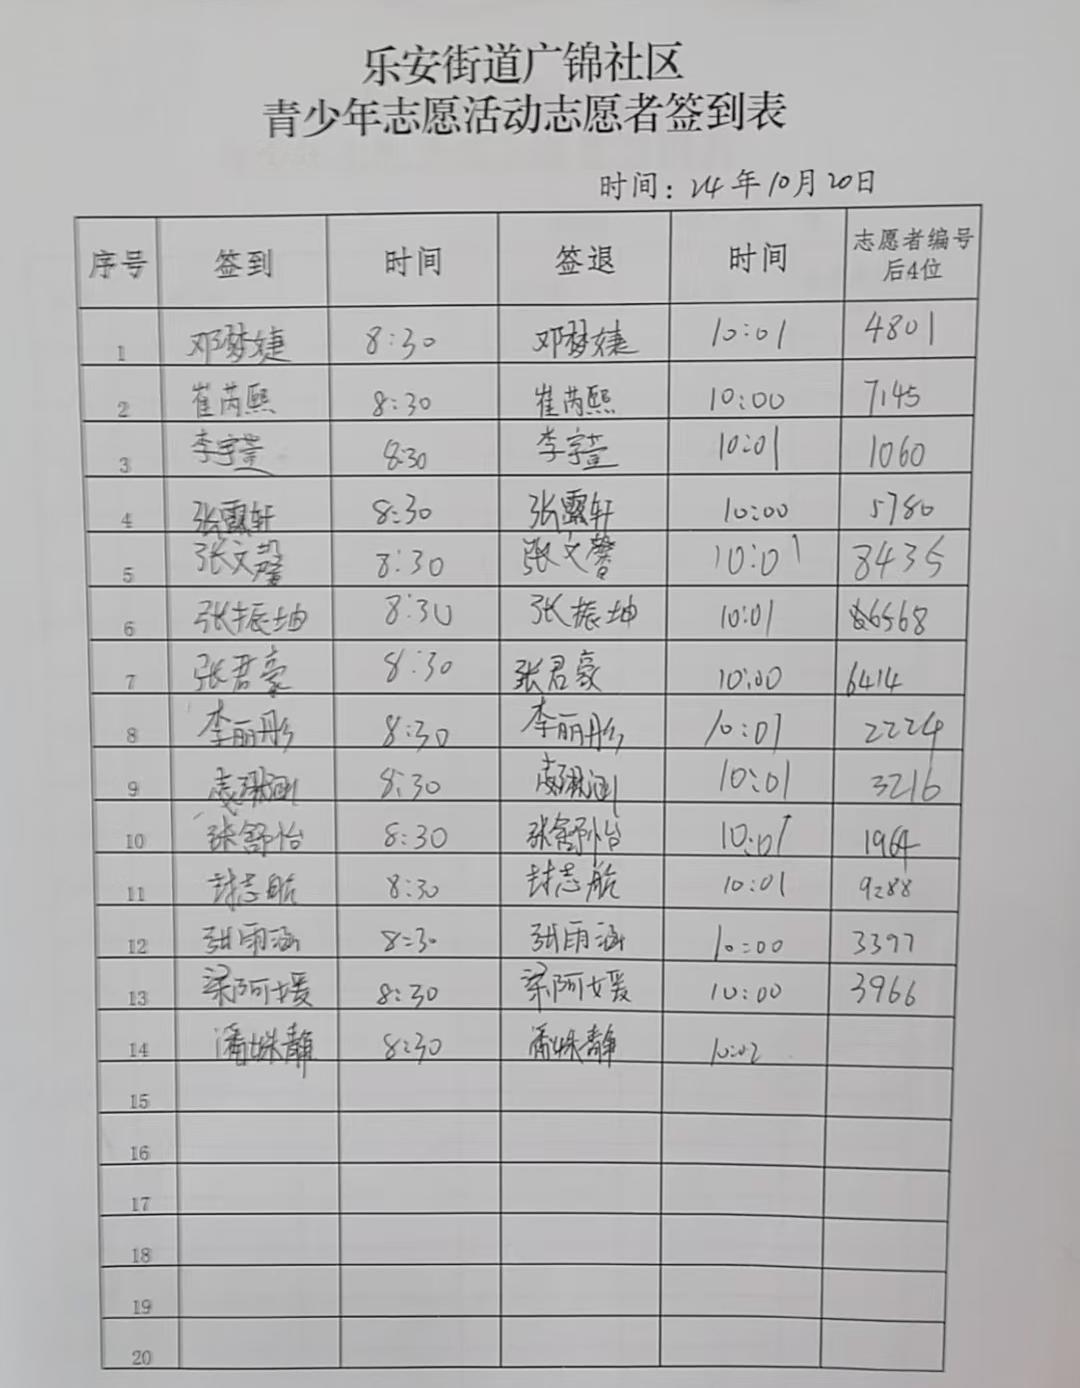 乐安街道广锦社区
青少年志愿活动志愿者签到表
时间：24年10月20日
序号 签到 时间 签退 时间 志愿者编号后4位
1 邓梦婕 8:30 邓梦婕 10:01 4801
2 崔芮熙 8:30 崔芮熙 10:00 7145
3 李宇萱 8:30 李宇萱 10:01 1060
4 张露轩 8:30 张露轩 10:00 5780
5 张文馨 8:30 张文馨 10:01 8435
6 张振坤 8:30 张振坤 10:01 6568
7 张君豪 8:30 张君豪 10:00 6414
8 李丽彤 8:30 李丽彤 10:01 2224
9 8:30 10:01 3216
10 张舒怡 8:30 张舒怡 10:01 1964
11 封志航 8:30 封志航 10:01 9288
12 张雨涵 8:30 张雨涵 10:00 3397
13 梁阿媛 8:30 梁阿媛 10:00 3966
14 潘姝静 8:30 潘姝静 10:02
15
16
17
18
19
20